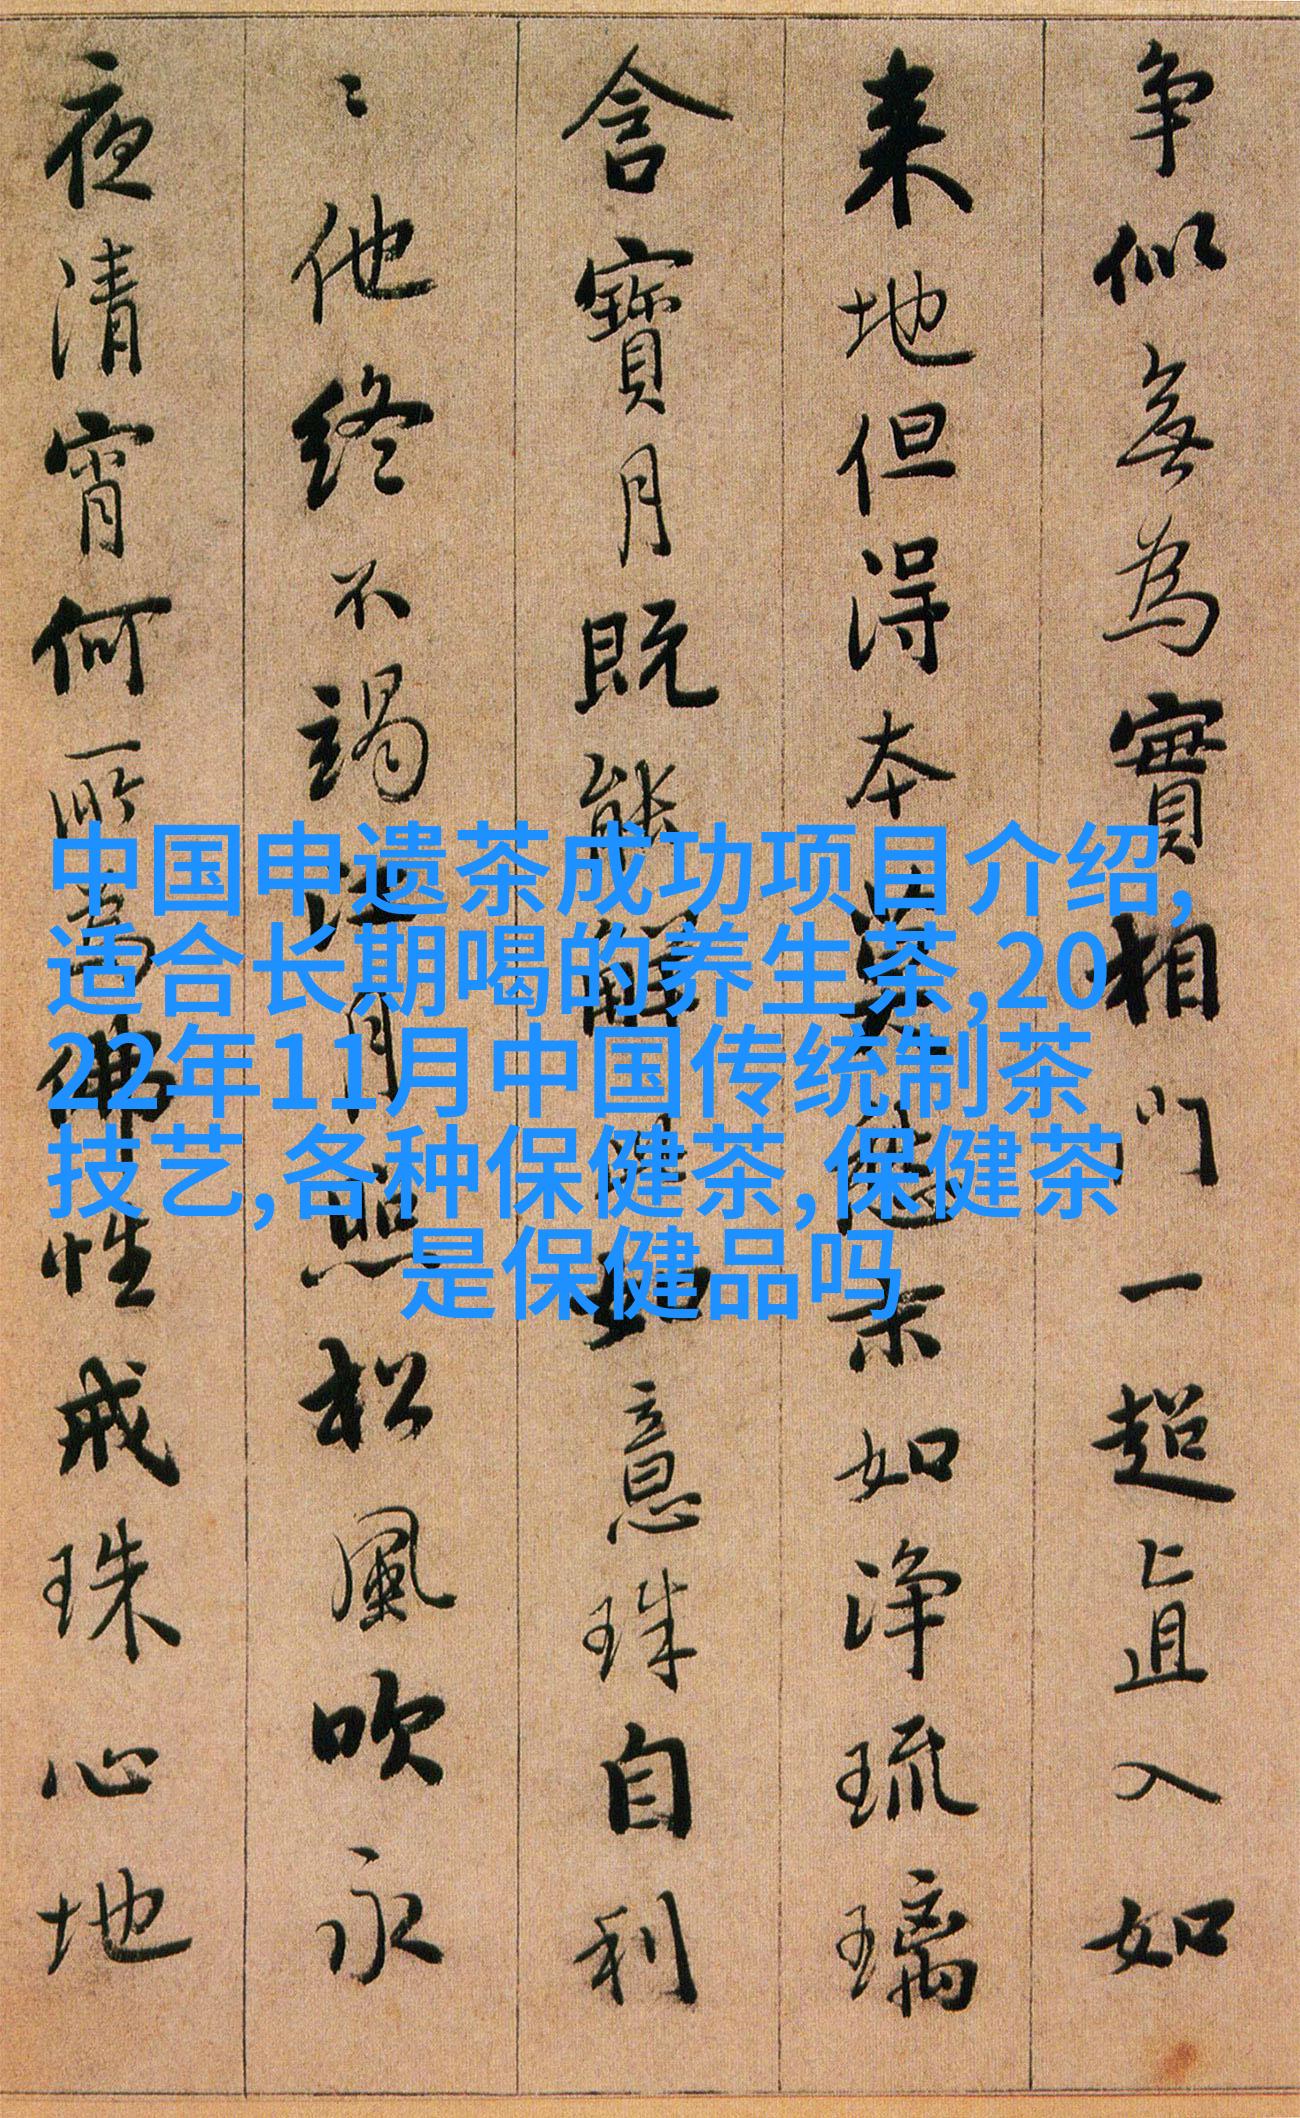 中国申遗茶成功项目介绍,
适合长期喝的养生茶,20
22年11月中国传统制茶
技艺,各种保健茶,保健茶
是保健品吗
争似無為實相門一超直入如
来地但得本莫愁末如淨琉璃
含寶月既能解此如意珠自利
〻他終不竭江月照松風吹永
夜清宵何所為佛性戒珠心地